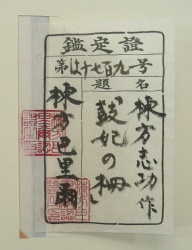 鑑定證
第はナ七百九号
題名
棟方志功作
鼓妃の柵
棟方巴里爾